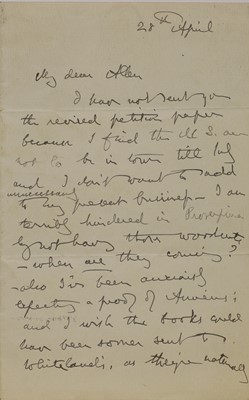 28th April
My dear Allen
I have not sent you
the revised petition paper
because I find the M S. are
not to be in town till July
and I don't want to add
unnecessary
to my present business — I am
terribly hindered in Proserpina
by not having those woodcuts
— when are they coming?
— also I've been anxiously
expecting a proof of Amiens:
and I wish the books could
have been sooner sent to
Whitelands, as they're naturally